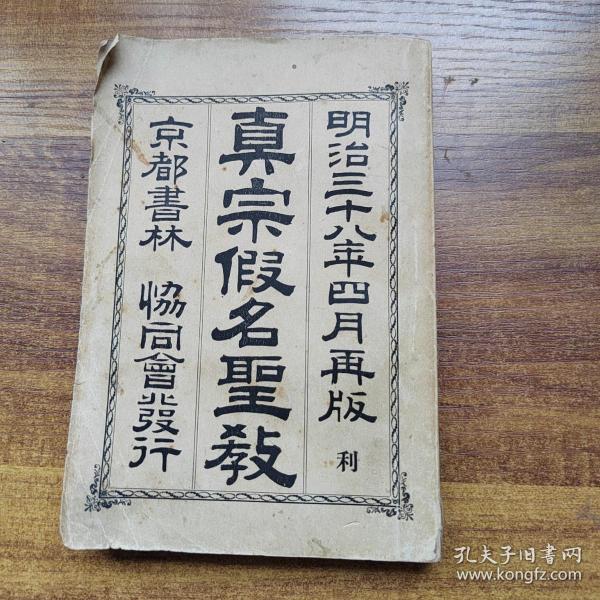 明治三十八年四月再版 利
真宗假名聖教
京都書林 協同會發行
孔夫子旧书网
www.kongfz.com